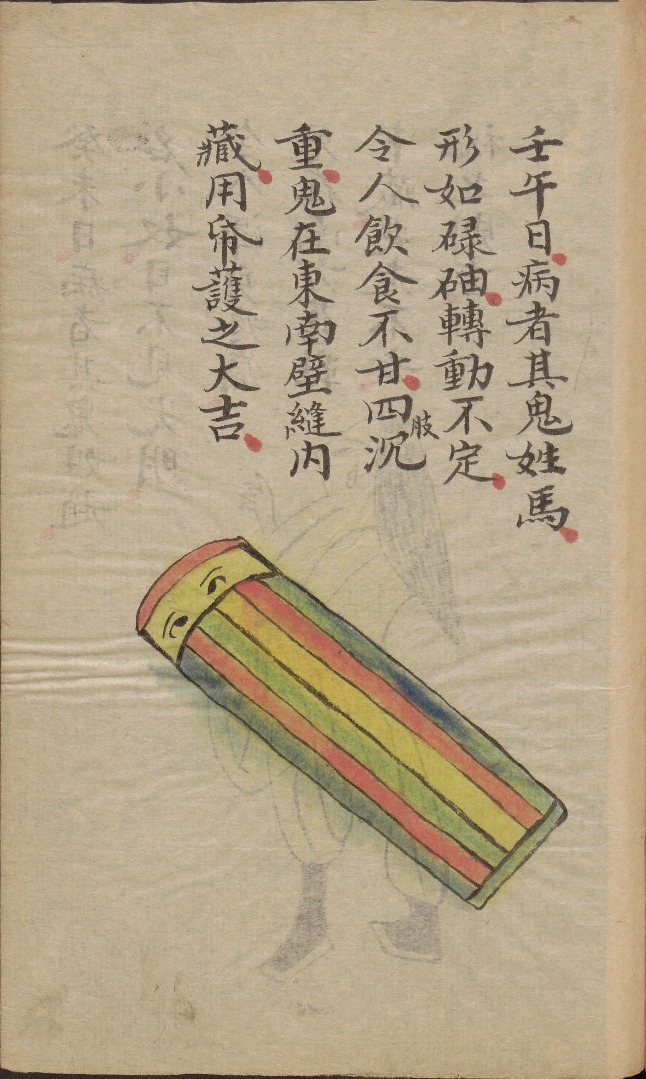 壬午日病者其鬼姓馬
形如碌砘轉動不定
令人飲食不甘四肢沉
重鬼在東南壁縫内
藏用帋護之大吉